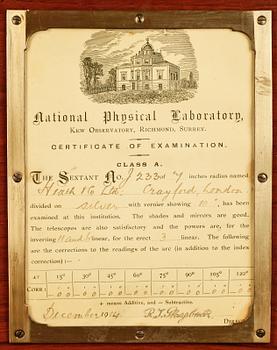 National Physical Laboratory,
KEW OBSERVATORY, RICHMOND, SURREY.
CERTIFICATE OF EXAMINATION.
CLASS A.
THE SEXTANT No. J 233 of 7 inches radius named
Heath & Co Ltd. Crayford, London
divided on silver with vernier showing 10", has been
examined at this institution. The shades and mirrors are good.
The telescopes are also satisfactory and the powers are, for the
inverting 11 and 6 linear, for the erect 3 linear. The following
are the corrections to the readings of the arc (in addition to the index
correction) :—
AT 15° 30° 45° 60° 75° 90° 105° 120°
CORR: 0 0 0 0 0 0 0 0
0 0 0 0 0 0 0 0
+ means Additive, and − Subtractive.
December 1914.